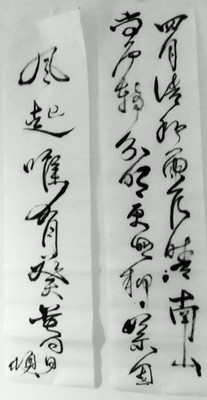 四月清和雨乍晴南山
當户轉分明更無柳絮因
風起唯有葵花向日傾